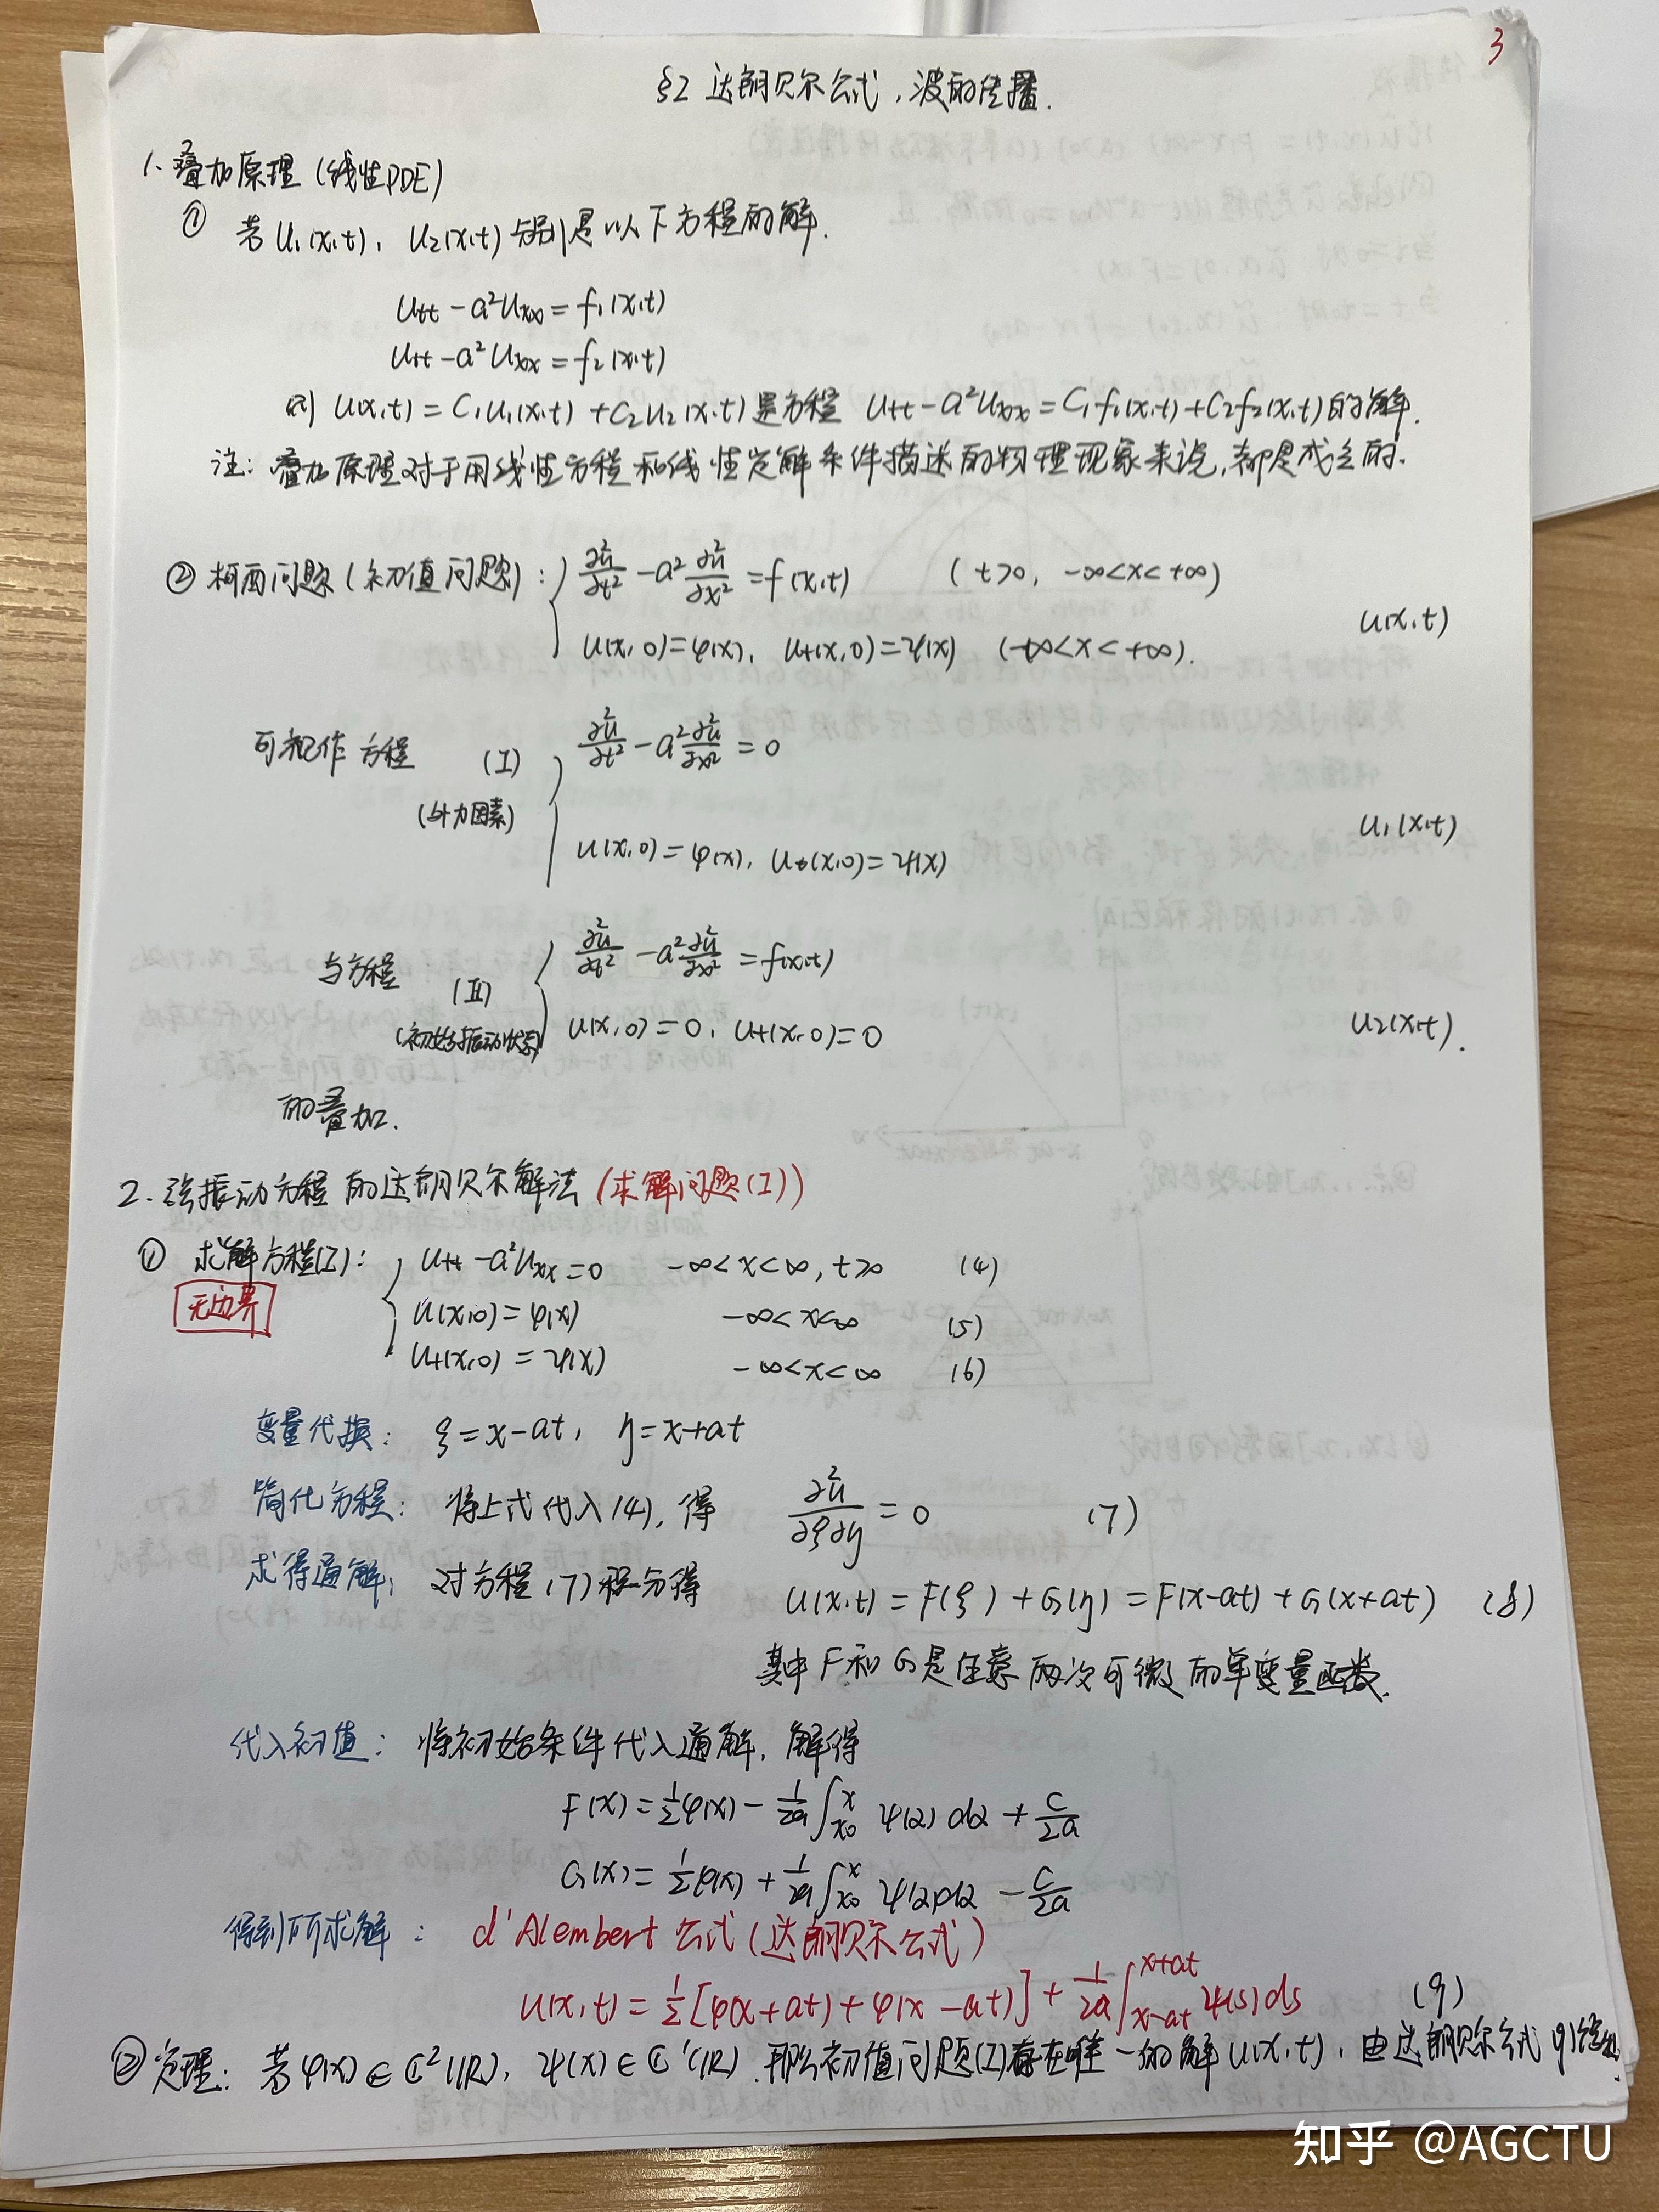 3
§2 达朗贝尔公式,波的传播.
1. 叠加原理 (线性PDE)
① 若 u₁(x,t), u₂(x,t) 分别是以下方程的解.
uₜₜ - a²uₓₓ = f₁(x,t)
uₜₜ - a²uₓₓ = f₂(x,t)
则 u(x,t) = C₁u₁(x,t) + C₂u₂(x,t) 是方程 uₜₜ - a²uₓₓ = C₁f₁(x,t) + C₂f₂(x,t) 的解.
注: 叠加原理对于用线性方程和线性定解条件描述的物理现象来说,都是成立的.
② 柯西问题 (初值问题): { ∂²u/∂t² - a² ∂²u/∂x² = f(x,t) (t>0, -∞<x<+∞)
u(x,0)=φ(x), uₜ(x,0)=ψ(x) (-∞<x<+∞). u(x,t)
可视作方程 (I) { ∂²u/∂t² - a² ∂²u/∂x² = 0
(外力因素)
u(x,0)=φ(x), uₜ(x,0)=ψ(x) u₁(x,t)
与方程 (II) { ∂²u/∂t² - a² ∂²u/∂x² = f(x,t)
(初始振动状态) u(x,0)=0, uₜ(x,0)=0 u₂(x,t).
的叠加.
2. 弦振动方程的达朗贝尔解法 (求解问题(I))
① 求解方程(I): { uₜₜ - a²uₓₓ=0 -∞<x<∞, t>0 (4)
无边界 u(x,0)=φ(x) -∞<x<∞ (5)
uₜ(x,0)=ψ(x) -∞<x<∞ (6)
变量代换: ξ=x-at, η=x+at
简化方程: 将上式代入(4), 得 ∂²u/∂ξ∂η = 0 (7)
求得通解: 对方程(7)积分得 u(x,t) = F(ξ) + G(η) = F(x-at) + G(x+at) (8)
其中 F 和 G 是任意两次可微的单变量函数.
代入初值: 将初始条件代入通解, 解得
F(x) = ½φ(x) - 1/2a ∫ₓ₀ˣ ψ(α)dα + C/2a
G(x) = ½φ(x) + 1/2a ∫ₓ₀ˣ ψ(α)dα - C/2a
得到所求解: d'Alembert 公式 (达朗贝尔公式)
u(x,t) = ½[φ(x+at) + φ(x-at)] + 1/2a ∫_{x-at}^{x+at} ψ(s)ds (9)
② 定理: 若 φ(x)∈C²(ℝ), ψ(x)∈C¹(ℝ). 那么初值问题(I)存在唯一的解 u(x,t), 由达朗贝尔公式(9)给出.
知乎 @AGCTU